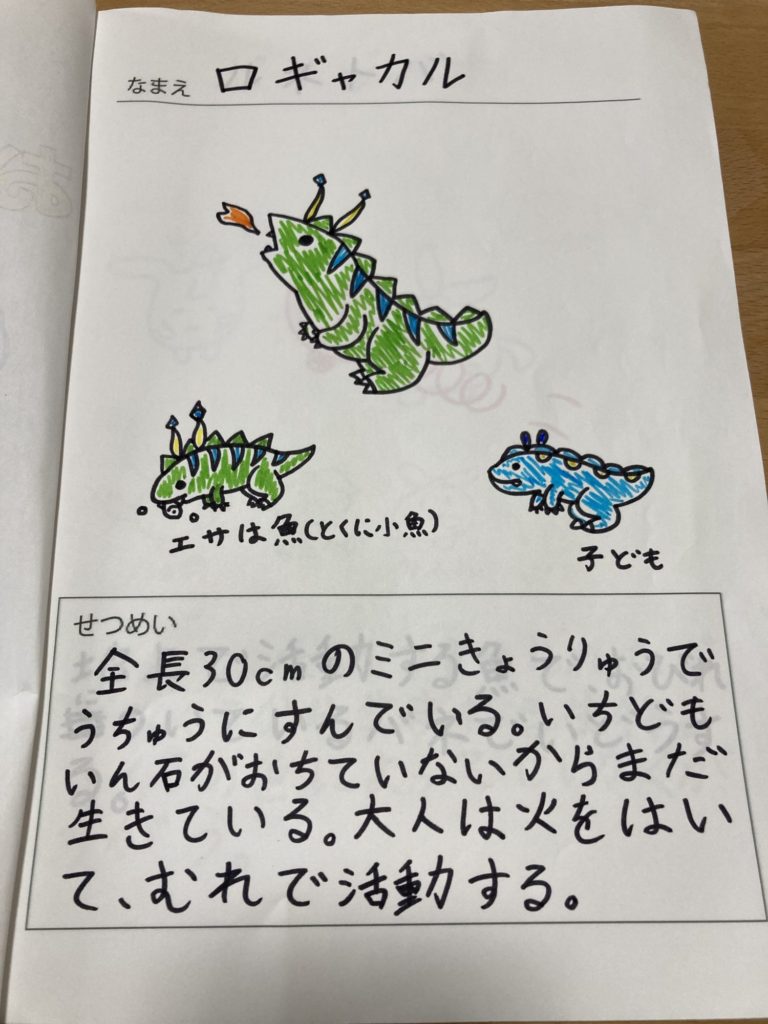 なまえ ロギャカル
エサは魚(とくに小魚)
子ども
せつめい
全長30cmのミニきょうりゅうで
うちゅうにすんでいる。いちども
いん石がおちていないからまだ
生きている。大人は火をはい
て、むれで活動する。